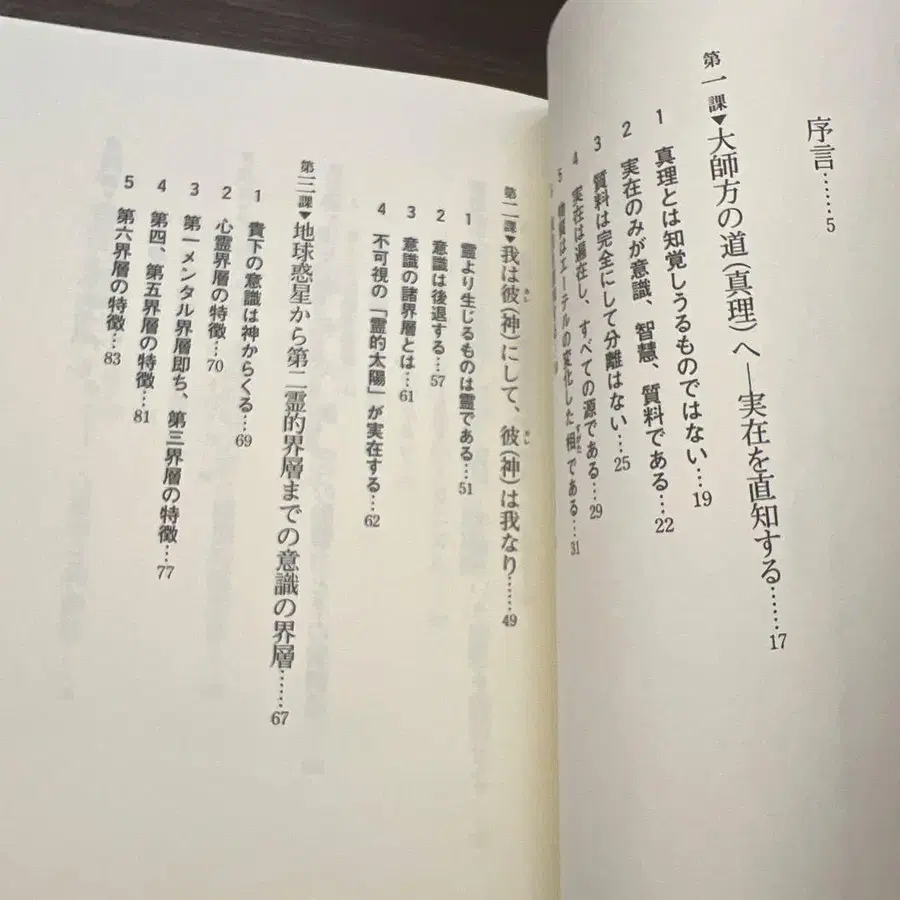 序言……5
第一課▼大師方の道(真理)へ—実在を直知する……17
1 真理とは知覚しうるものではない…19
2 実在のみが意識、智慧、質料である…22
3 質料は完全にして分離はない…25
4 実在は遍在し、すべての源である…29
5 物質はエーテルの変化した相(すがた)である…31
第二課▼我は彼(神)にして、彼(神)は我なり……49
1 霊より生じるものは霊である…51
2 意識は後退する…57
3 意識の諸界層とは…61
4 不可視の「霊的太陽」が実在する…62
第三課▼地球惑星から第二霊的界層までの意識の界層……67
1 貴下の意識は神からくる…69
2 心霊界層の特徴…70
3 第一メンタル界層即ち、第三界層の特徴…77
4 第四、第五界層の特徴…81
5 第六界層の特徴…83